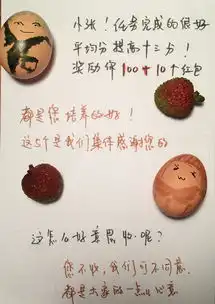 小张！任务完成的很好
平均分提高十三分！
奖励你100+10个红包
都是您培养的好！
这5个是我们集体感谢您的
这怎么好意思收呢？
您不收，我们可不同意
都是大家的一点心意